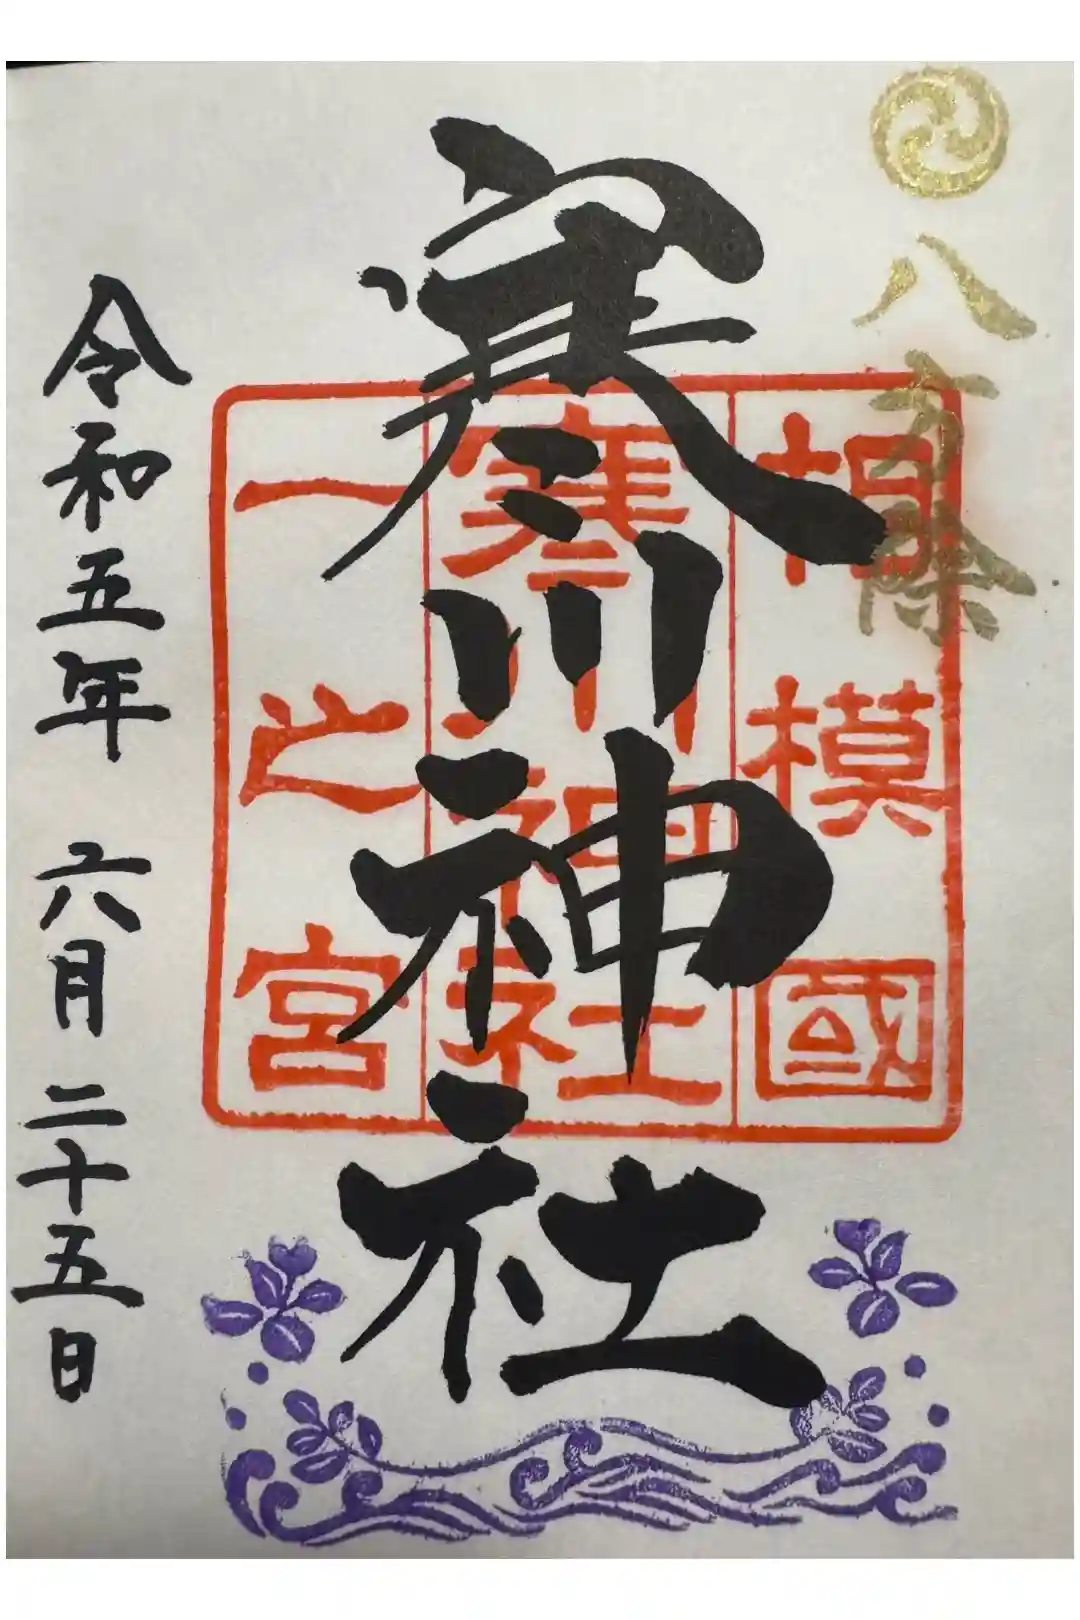 八方除
寒川神社
相模國
寒川神社
一之宮
令和五年 六月二十五日